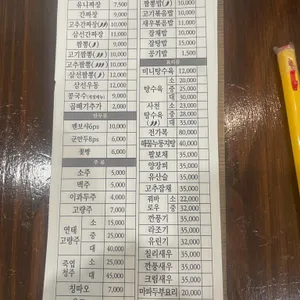 유니짜장 7,500
간짜장 9,000
고추간짜장 10,000
삼선간짜장 10,000
짬뽕 9,000
고기짬뽕 10,000
고추짬뽕 10,000
삼선짬뽕 12,000
삼선우동 12,000
콩국수 9,000
곱빼기추가 2,000
만두류
멘보샤6ps 10,000
군만두8ps 6,000
꽃빵
주류
소주 5,000
맥주 5,000
이과두주 4,000
고량주 7,000
연태고량주 소 15,000
중 25,000
대 40,000
죽엽청주 소 25,000
대 45,000
칭따오 7,000
짬뽕밥 10,000
고기볶음밥 10,000
새우볶음밥 10,000
잡채밥 10,000
잡탕밥 15,000
공기밥 1,500
요리류
미니탕수육 12,000
탕수육 소 20,000
중 25,000
대 30,000
사천탕수육 소 23,000
중 28,000
대 33,000
전가복 80,000
해물누룽지탕 40,000
팔보채 35,000
양장피 35,000
유산슬 35,000
고추잡채 35,000
꿔바로우 소 22,000
중 32,000
깐풍기 35,000
라조기 35,000
유린기 32,000
칠리새우 35,000
깐풍새우 35,000
크림새우 35,000
마파두부요리 20,000